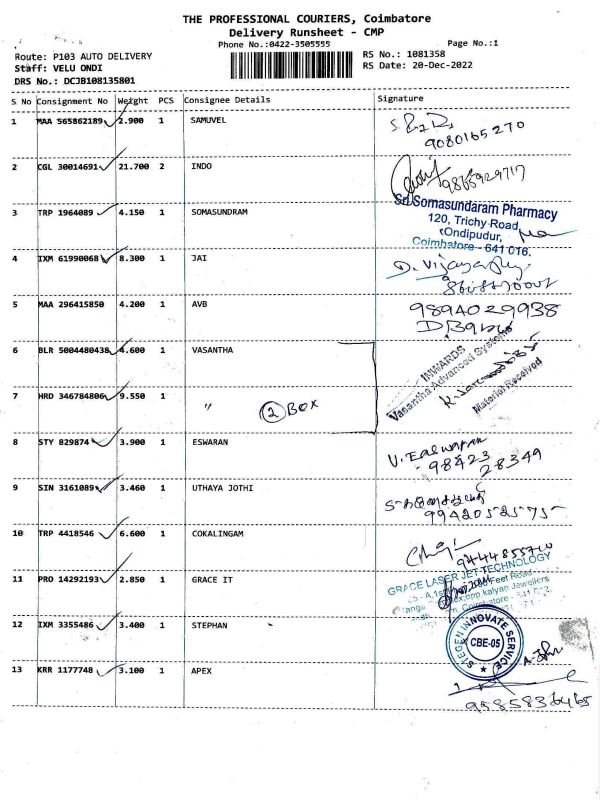 THE PROFESSIONAL COURIERS, Coimbatore
Delivery Runsheet - CMP
Phone No.:0422-3505555
Page No.:1
Route: P103 AUTO DELIVERY
Staff: VELU ONDI
DRS No.: DCJB108135801
RS No.: 1081358
RS Date: 20-Dec-2022
S No Consignment No Weight PCS Consignee Details Signature
1 MAA 565862189 2.900 1 SAMUVEL
9080165270
2 CGL 30014691 21.700 2 INDO
9865929717
Sri Somasundaram Pharmacy
3 TRP 1964089 4.150 1 SOMASUNDRAM
120, Trichy Road,
Ondipudur,
Coimbatore - 641 016.
4 IXM 61990068 8.300 1 JAI
D. Vijaya
5 MAA 296415850 4.200 1 AVB
9894029938
6 BLR 5004480438 4.600 1 VASANTHA
INWARDS
Vasantha Advanced Systems
Material Received
7 HRD 346784806 9.550 1 " 2 BOX
8 STY 829874 3.900 1 ESWARAN
V. Easwaran
98423
28349
9 SIN 3161089 3.460 1 UTHAYA JOTHI
9942052575
10 TRP 4418546 6.600 1 COKALINGAM
9444855710
11 PRO 14292193 2.850 1 GRACE IT
GRACE LASER JET TECHNOLOGY
Feet Road
opp.kalyan Jewellers
12 IXM 3355486 3.400 1 STEPHAN
STEGEN INNOVATE SERVICE
CBE-05
13 KRR 1177748 3.100 1 APEX
9585836465